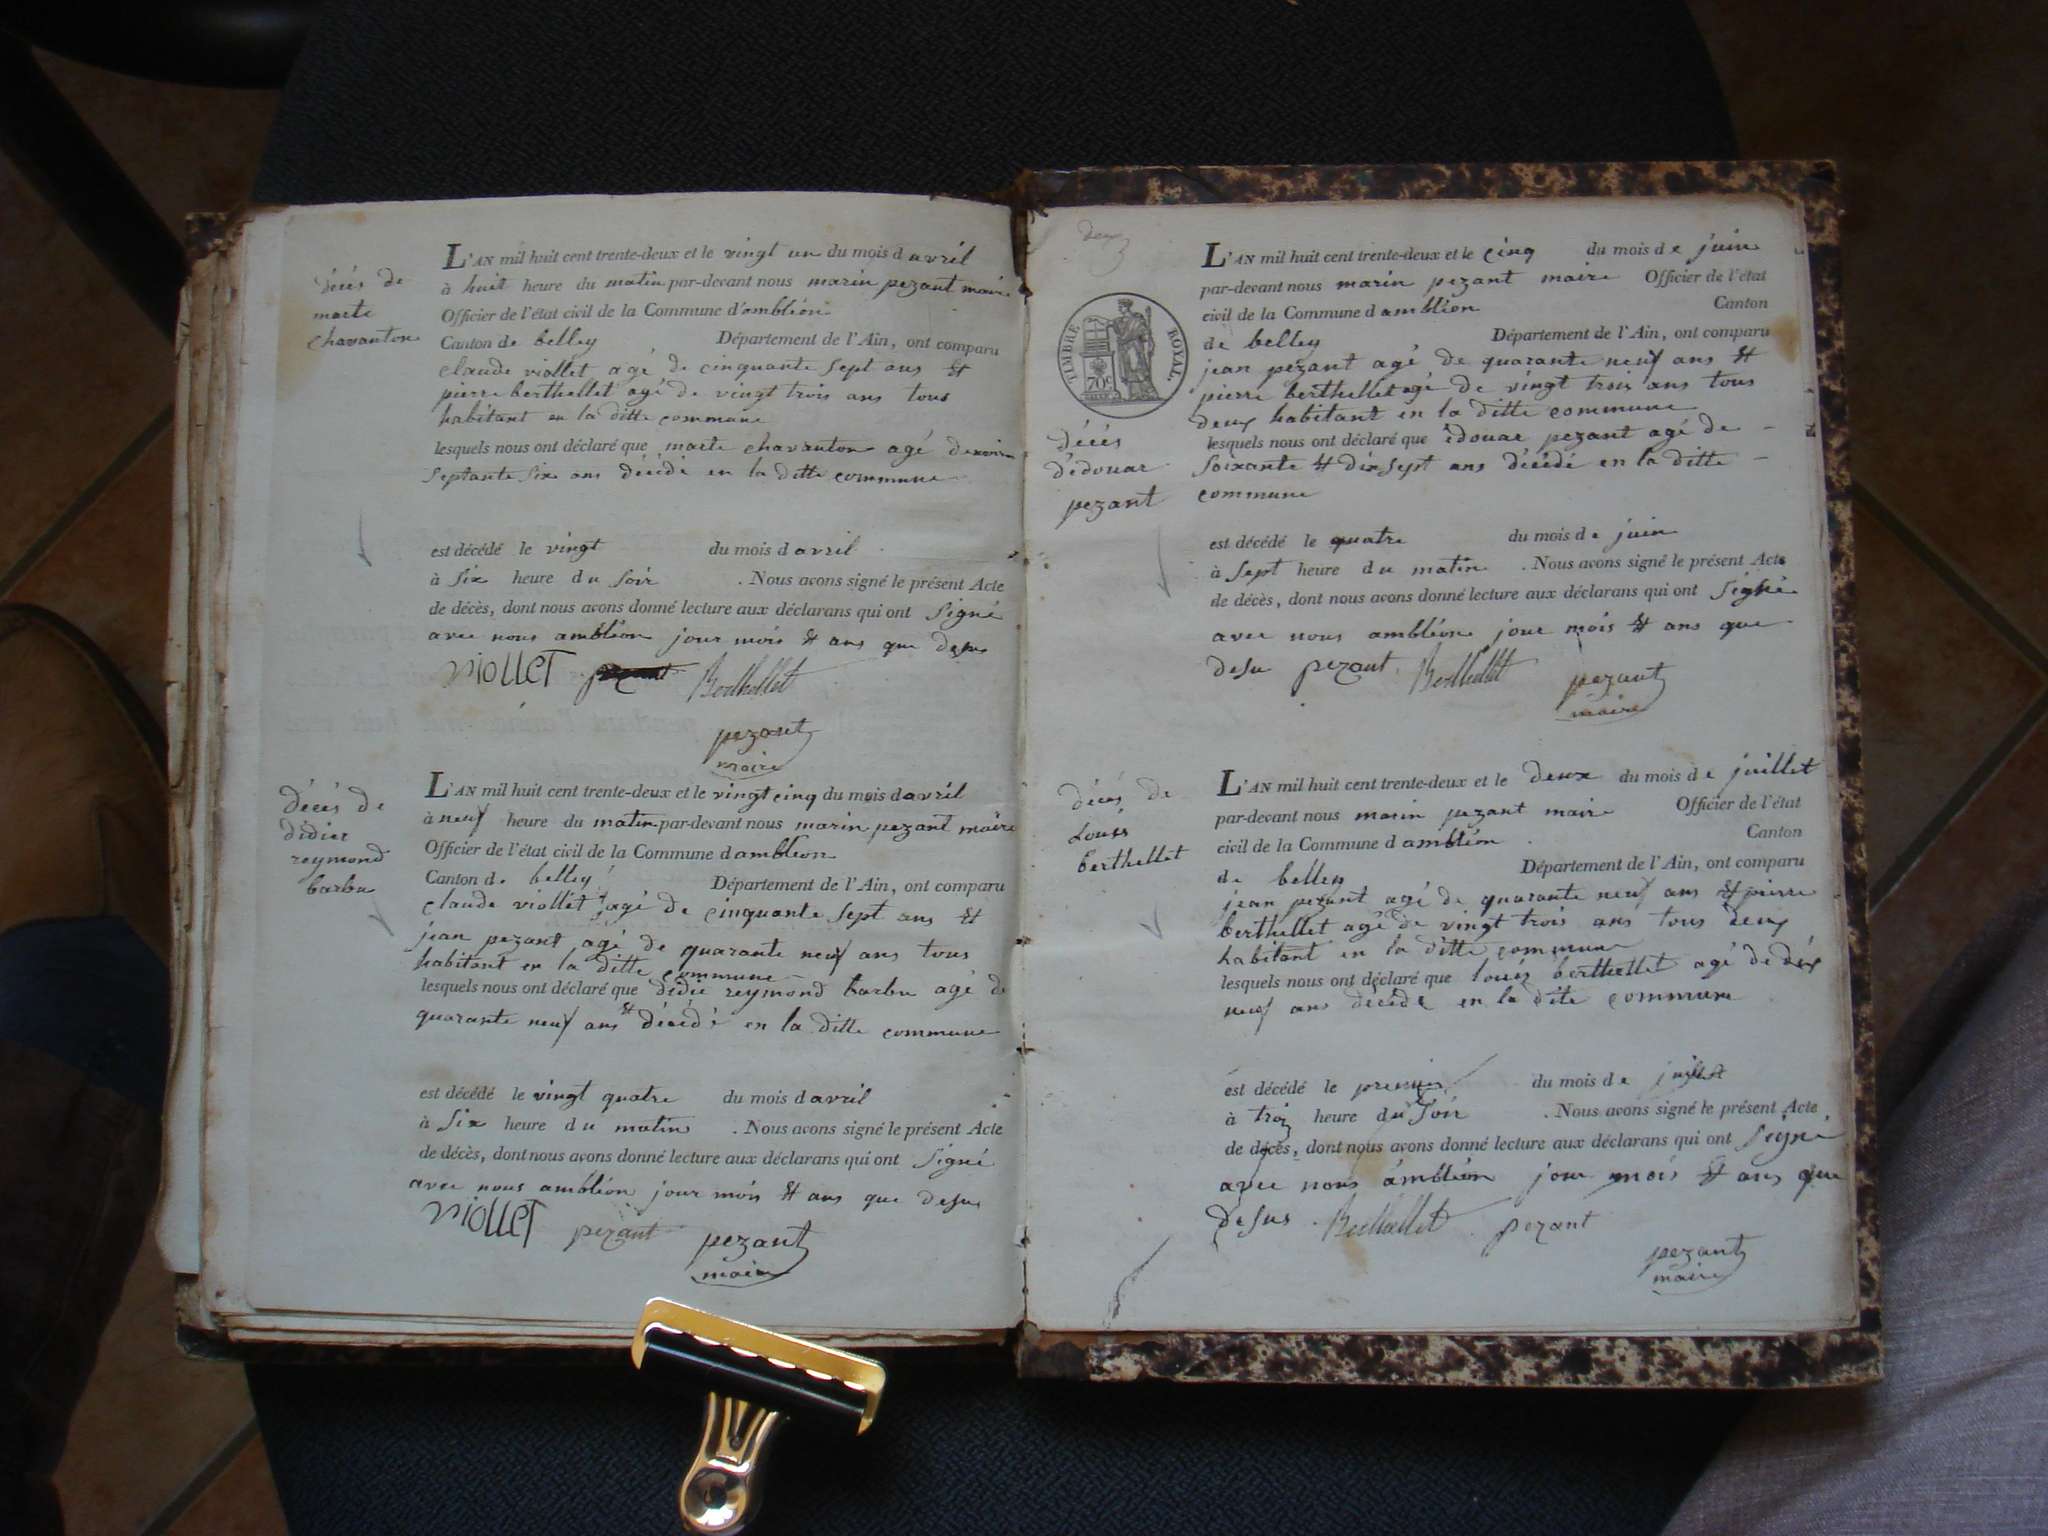 décès de
marte
chavanton
L'AN mil huit cent trente-deux et le vingt un du mois d avril
à huit heure du matin par-devant nous marin pezant maire
Officier de l'état civil de la Commune d'ambléon
Canton de belley Département de l'Ain, ont comparu
claude viollet agé de cinquante sept ans et
pierre berthellet agé de vingt trois ans tous
habitant en la ditte commune
lesquels nous ont déclaré que marte chavanton agé
septante six ans décédé en la ditte commune
est décédé le vingt du mois d avril
à six heure du soir . Nous avons signé le présent Acte
de décès, dont nous avons donné lecture aux déclarans qui ont signé
avec nous ambléon jour mois et ans que desus
viollet pezant Berthellet
pezant
maire
décés de
didier
reymond
barbu
L'AN mil huit cent trente-deux et le vingt cinq du mois d avril
à neuf heure du matin par-devant nous marin pezant maire
Officier de l'état civil de la Commune d ambléon
Canton de belley Département de l'Ain, ont comparu
claude viollet agé de cinquante sept ans et
jean pezant agé de quarante neuf ans tous
habitant en la ditte commune
lesquels nous ont déclaré que didié reymond barbu agé de
quarante neuf ans et décédé en la ditte commune
est décédé le vingt quatre du mois d avril
à six heure du matin . Nous avons signé le présent Acte
de décès, dont nous avons donné lecture aux déclarans qui ont signé
avec nous ambléon jour mois et ans que desus
viollet pezant pezant
maire
deux
TIMBRE ROYAL.
70c
décés
d'édouar
pezant
L'AN mil huit cent trente-deux et le cinq du mois de juin
par-devant nous marin pezant maire Officier de l'état
civil de la Commune d ambléon Canton
de belley Département de l'Ain, ont comparu
jean pezant agé de quarante neuf ans et
pierre berthellet agé de vingt trois ans tous
deux habitant en la ditte commune
lesquels nous ont déclaré que édouar pezant agé de
soixante et dix sept ans décédé en la ditte
commune
est décédé le quatre du mois de juin
à sept heure du matin . Nous avons signé le présent Acte
de décès, dont nous avons donné lecture aux déclarans qui ont signé
avec nous ambléon jour mois et ans que
desu pezant Berthellet pezant
maire
décés de
Louis
berthellet
L'AN mil huit cent trente-deux et le deux du mois de juillet
par-devant nous marin pezant maire Officier de l'état
civil de la Commune d ambléon Canton
de belley Département de l'Ain, ont comparu
jean pezant agé de quarante neuf ans et pierre
berthellet agé de vingt trois ans tous deux
habitant en la ditte commune
lesquels nous ont déclaré que louis berthellet agé de dix
neuf ans décédé en la dite commune
est décédé le premier du mois de juillet
à troi heure du soir . Nous avons signé le présent Acte
de décès, dont nous avons donné lecture aux déclarans qui ont signé
avec nous ambléon jour mois et ans que
desus Berthellet pezant
pezant
maire